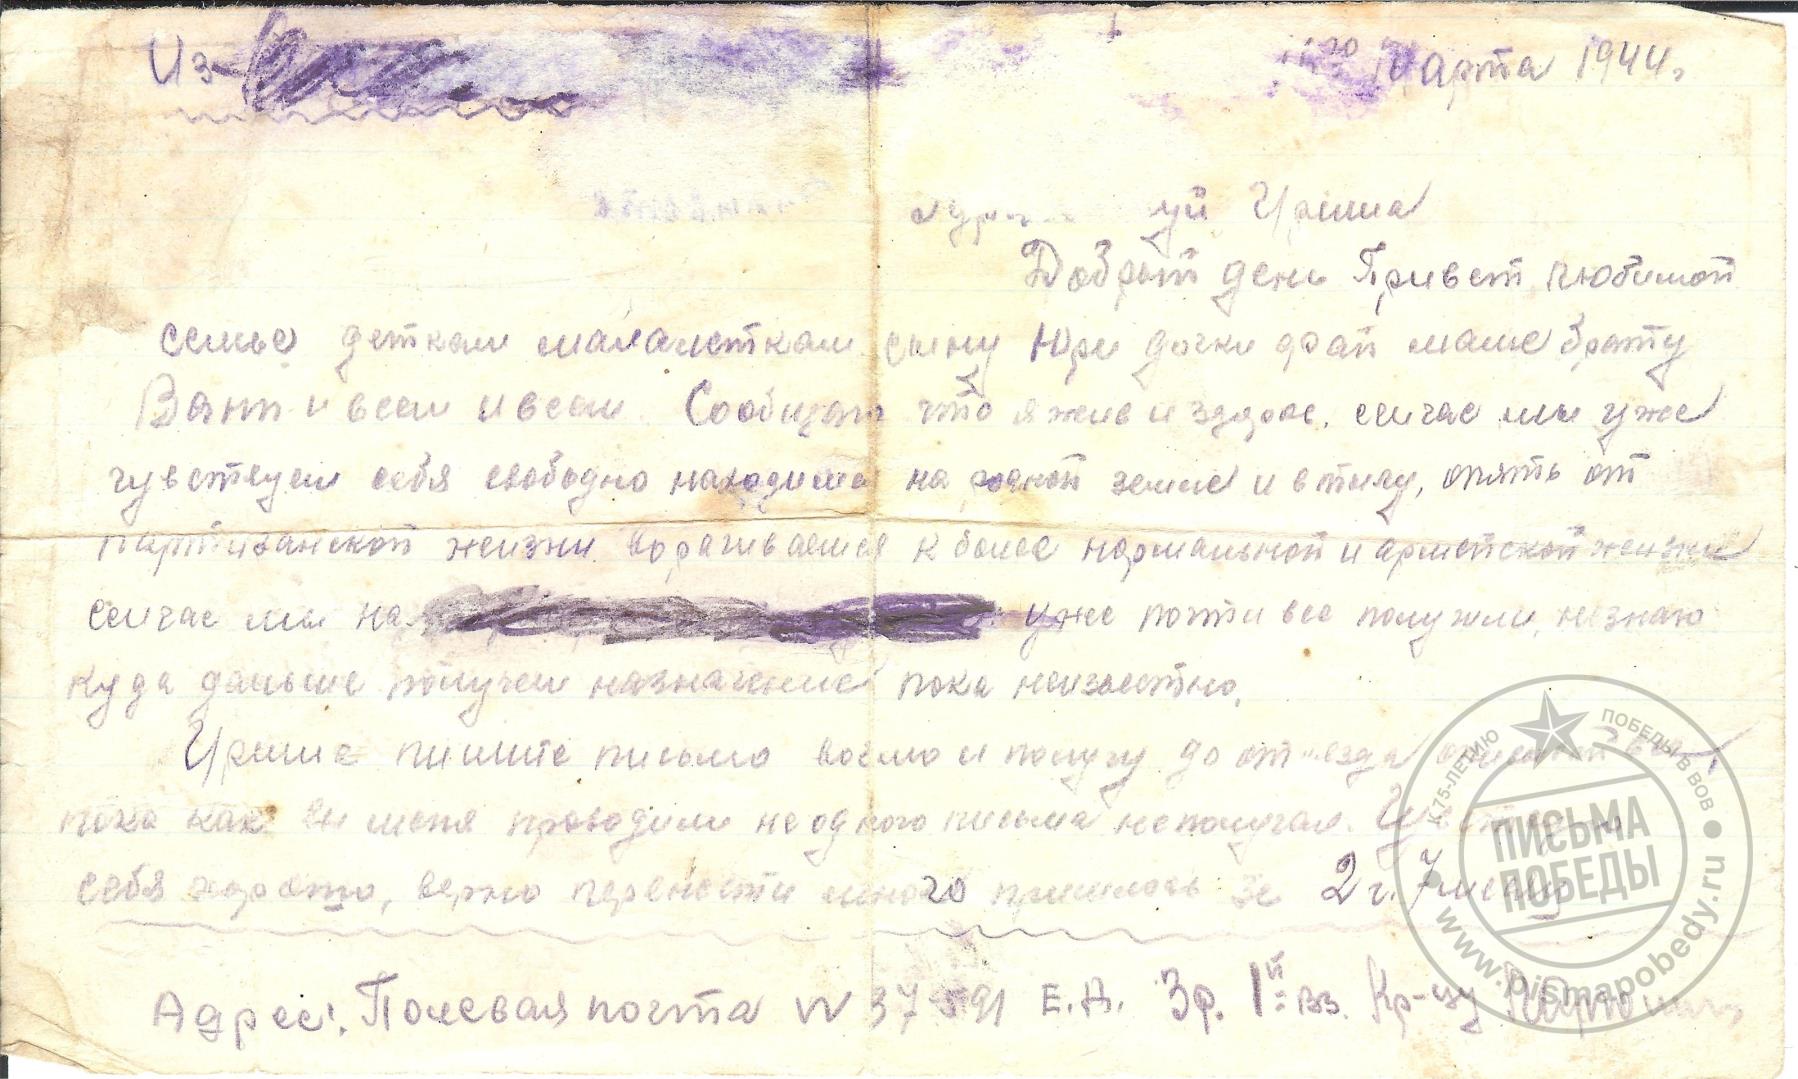 Из
Марта 1944.
Ириша
Добрый день Привет любимой
семье деткам малалеткам сыну Юри дочки маме брату
Вани и всем и всем. Сообщаю что я жив и здоров. сейчас мы уже
чувствуем себя свободно находимся на родной земле и в тылу, опять от
партизанской жизни ворачиваемся к более нормальной и армейской жизни
сейчас мы на уже почти все получили, незнаю
куда дальше получем назначение пока неизвестно.
Ириша пишите письмо и получу до отъезда
пока как вы меня проводили не одного письма неполучал. Чувствую
себя хорошо, верно перенести много пришлось за 2 г. 7 месяц
Адрес: Полевая почта N 37591 Е.Д. Зр. 1й вз. Кр-цу
К 75-ЛЕТИЮ ПОБЕДЫ В ВОВ
ПИСЬМА
ПОБЕДЫ
www.pismapobedy.ru